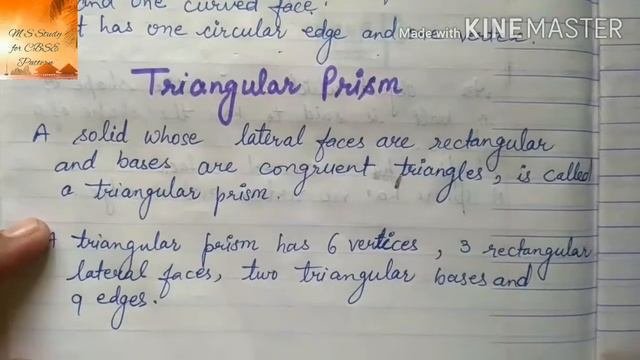 M S Study
for CBSE
Pattern
and one curved face.
t has one circular edge and
Made with KINEMASTER
Triangular Prism
A solid whose lateral faces are rectangular
and bases are congruent triangles, is called
a triangular prism.
A triangular prism has 6 vertices, 3 rectangular
lateral faces, two triangular bases and
9 edges.